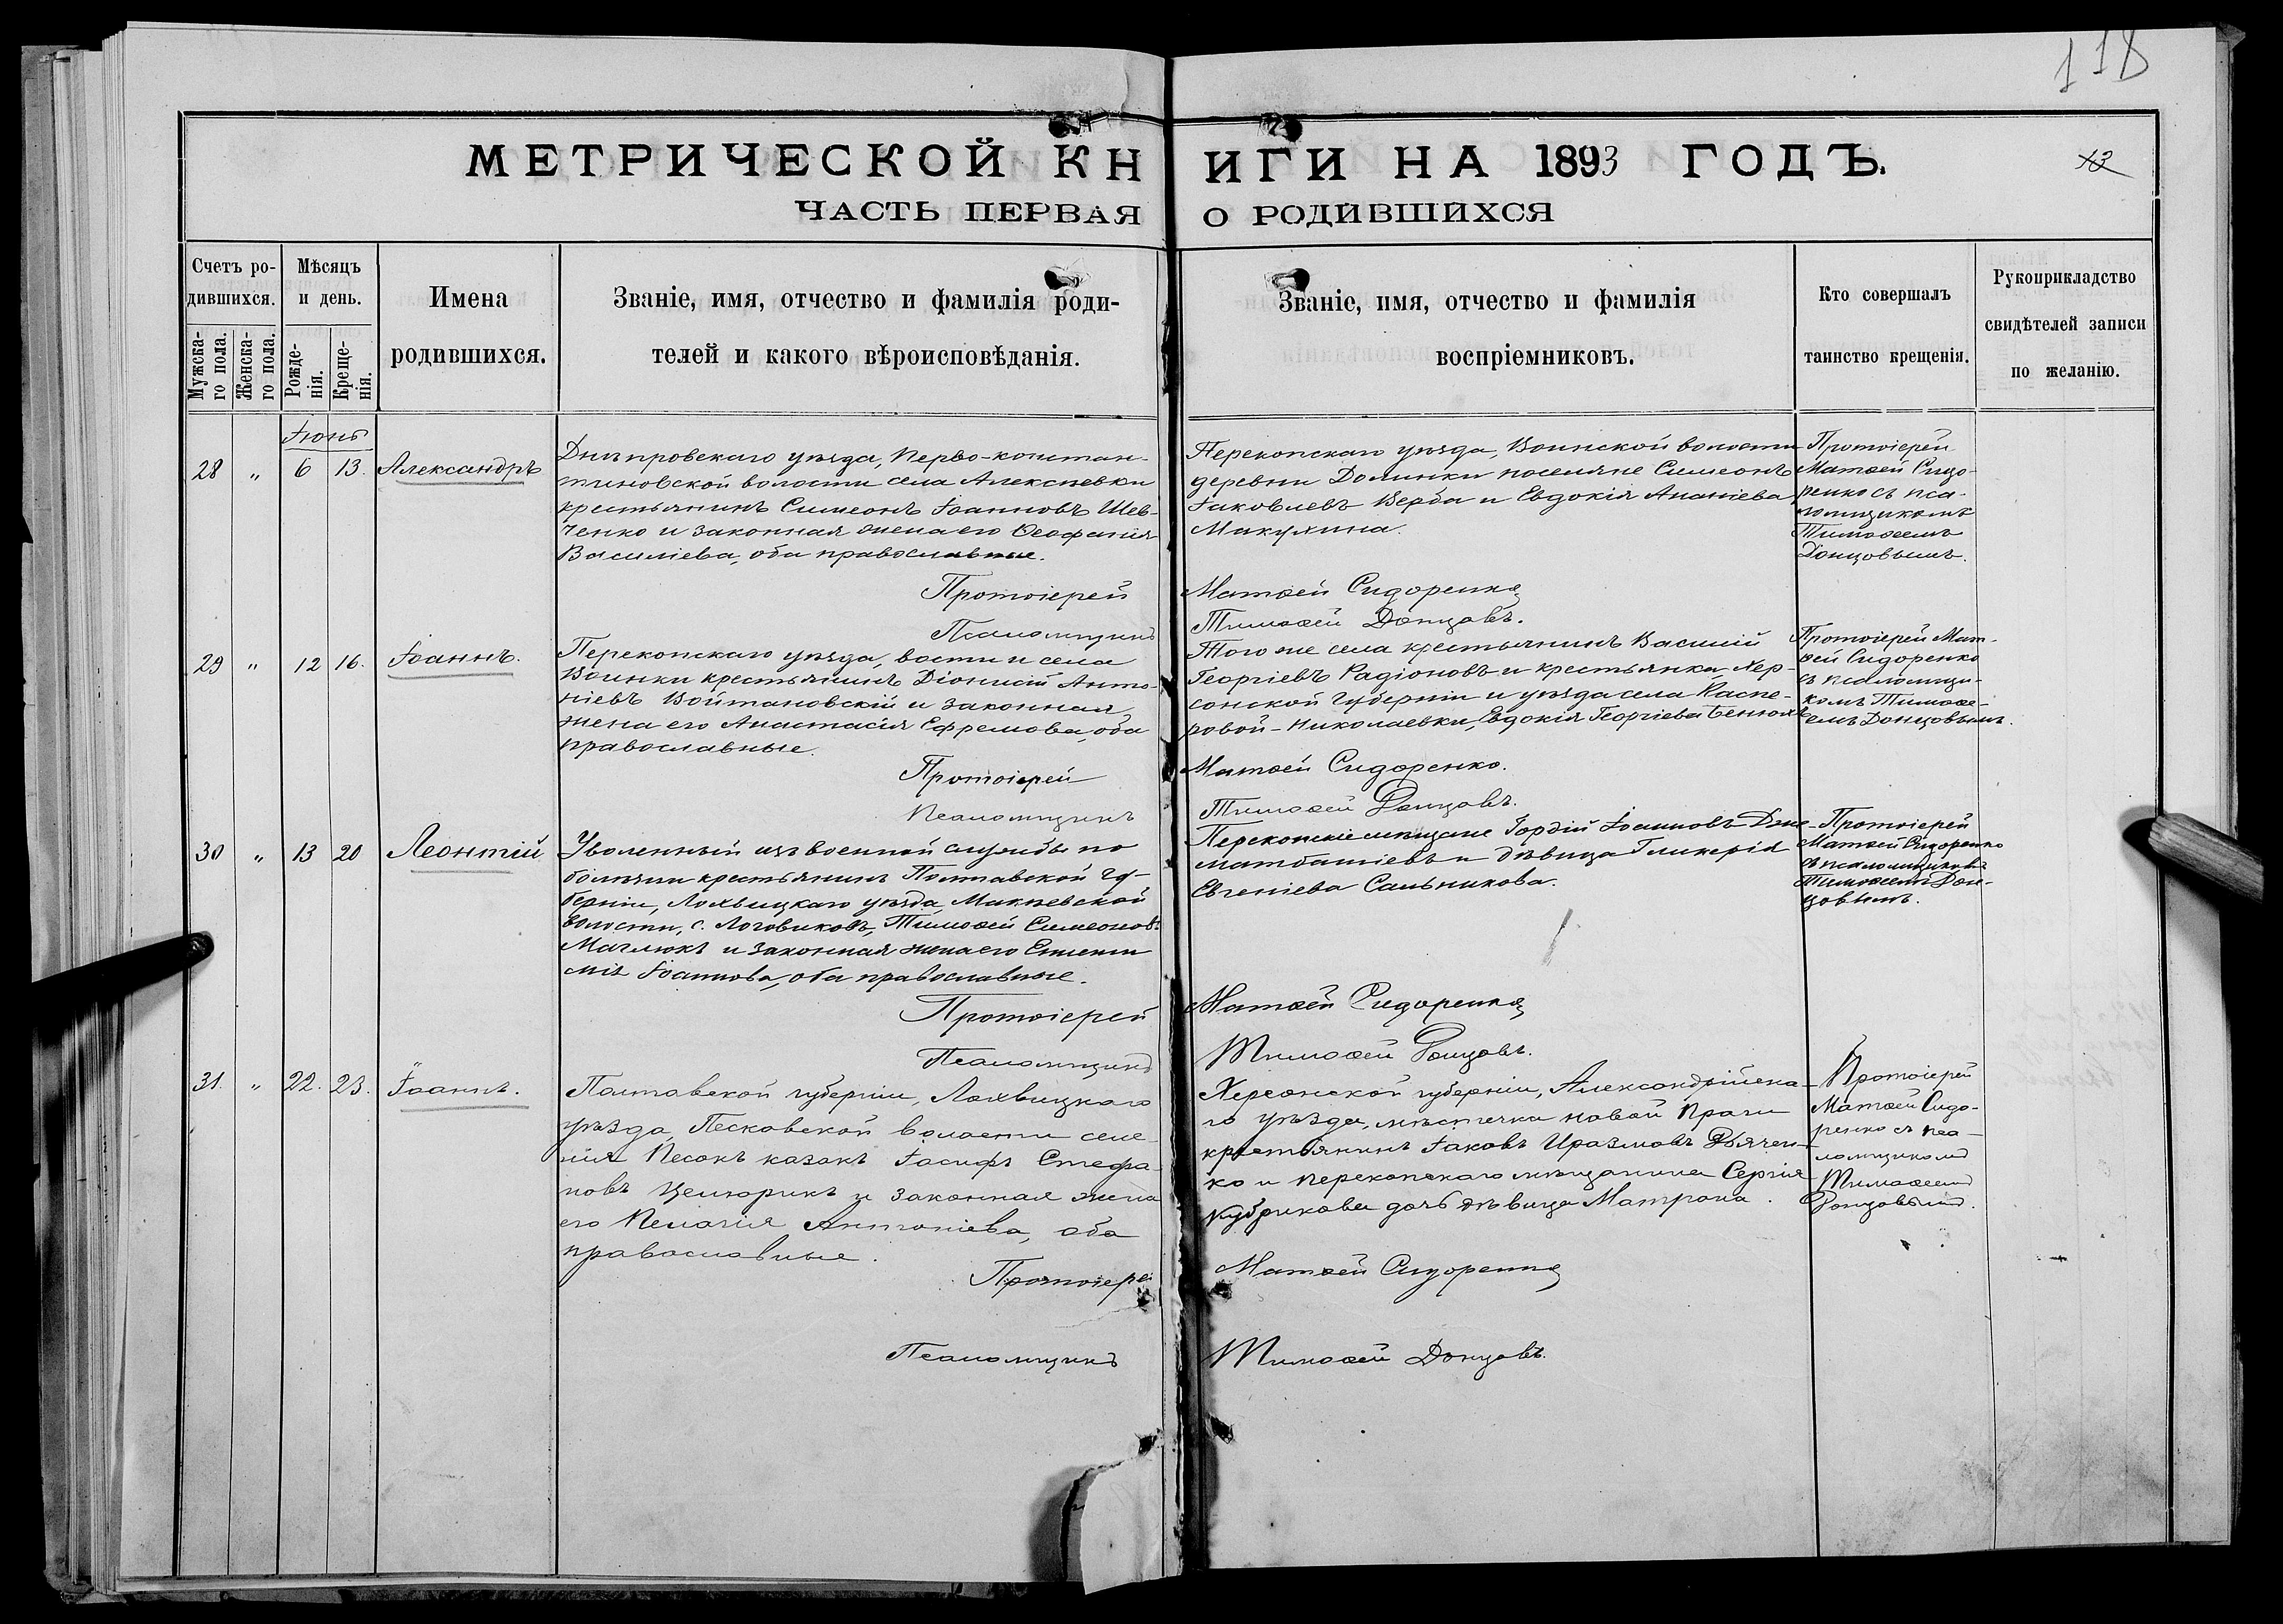 118
МЕТРИЧЕСКОЙ КНИГИ НА 1893 ГОДЪ.
13
ЧАСТЬ ПЕРВАЯ О РОДИВШИХСЯ
Счетъ ро-
дившихся.
Мужска-
го пола.
Женска-
го пола.
Мѣсяцъ
и день.
Рожде-
нія.
Креще-
нія.
Имена
родившихся.
Званіе, имя, отчество и фамилія роди-
телей и какого вѣроисповѣданія.
Званіе, имя, отчество и фамилія
воспріемниковъ.
Кто совершалъ
таинство крещенія.
Рукоприкладство
свидѣтелей записи
по желанію.
Іюнь
28 " 6 13. Александръ
Днѣпровскаго уѣзда, Перво-констан-
тиновской волости села Алексѣевки
крестьянинъ Симеонъ Іоанновъ Шев-
ченко и законная жена его Ѳеофанія
Василіева, оба православные.
Перекопскаго уѣзда, Воинской волости
деревни Долинки поселяне Симеонъ
Іаковлевъ Верба и Евдокія Ананіева
Макухина.
Протоіерей
Матѳей Сидо-
ренко съ пса-
ломщикомъ
Тимоѳеемъ
Донцовымъ.
Протоіерей Матѳей Сидоренко
Псаломщикъ Тимоѳей Донцовъ.
29 " 12 16. Іоаннъ.
Перекопскаго уѣзда, вости и села
Воинки крестьянинъ Діонисій Анто-
ніевъ Войтановскій и законная
жена его Анастасія Ефремова, оба
православные.
Того же села крестьянинъ Василій
Георгіевъ Радіоновъ и крестьянка, Хер-
сонской губерніи и уѣзда села Каспе-
ровой-Николаевки, Евдокія Георгіева
Протоіерей Мат-
ѳей Сидоренко
съ псаломщи-
комъ Тимоѳе-
емъ Донцовымъ.
Протоіерей Матѳей Сидоренко.
Псаломщикъ Тимоѳей Донцовъ.
30 " 13 20 Леонтій
Уволенный изъ военной службы по
болѣзни крестьянинъ Полтавской гу-
берніи, Лохвицкаго уѣзда, Макѣевской
волости, с. Логовиковъ, Тимоѳей Симеоновъ
Маглюкъ и законная жена его
Іоаннова, оба православные.
Перекопскіе мѣщане Гордій Іоанновъ
и дѣвица Гликерія
Евгеніева Сальникова.
Протоіерей
Матѳей Сидоренко
съ псаломщикомъ
Тимоѳеемъ Дон-
цовымъ.
Протоіерей Матѳей Сидоренко
Псаломщикъ Тимоѳей Донцовъ.
31. " 22. 23. Іоаннъ.
Полтавской губерніи, Лохвицкаго
уѣзда, Песковской волости селе-
нія Песокъ казакъ Іосифъ Стефа-
новъ Целюрикъ и законная жена
его Пелагія Антоніева, оба
православные.
Херсонской губерніи, Александрійска-
го уѣзда, мѣстечка новой Праги
крестьянинъ Іаковъ Иразмовъ Дьячен-
ко и перекопскаго мѣщанина Сергія
Кубрикова дочь дѣвица Матрона.
Протоіерей
Матѳей Сидо-
ренко съ пса-
ломщикомъ
Тимоѳеемъ
Донцовымъ.
Протоіерей Матѳей Сидоренко
Псаломщикъ Тимоѳей Донцовъ.